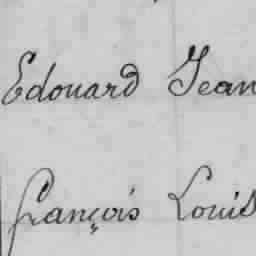 Edouard Jean
françois Louis